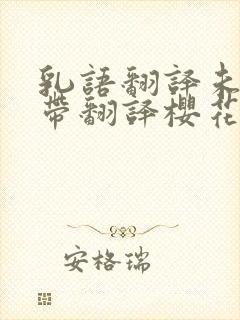 乳語翻譯未
帶翻譯櫻花
安格瑞